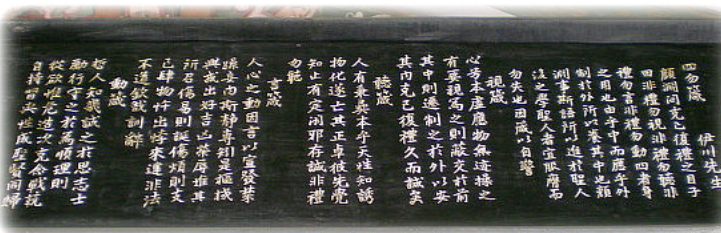 四勿箴 伊川先生
顏淵問克己復禮之目子
曰非禮勿視非禮勿聽非
禮勿言非禮勿動四者身
之用也由乎中而應乎外
制於外所以養其中也顏
淵事斯語所以進於聖人
後之學聖人者宜服膺而
勿失也因箴以自警
視箴
心兮本虛應物無迹操之
有要視為之則蔽交於前
其中則遷制之於外以安
其內克己復禮久而誠矣
聽箴
人有秉彝本乎天性知誘
物化遂亡其正卓彼先覺
知止有定閑邪存誠非禮
勿聽
言箴
人心之動因言以宣發禁
躁妄內斯靜專矧是樞機
興戎出好吉凶榮辱惟其
所召傷易則誕傷煩則支
己肆物忤出悖來違非法
不道欽哉訓辭
動箴
哲人知幾誠之於思志士
勵行守之於為順理則
從欲惟危造次克念戰兢
自持習與性成聖賢同歸